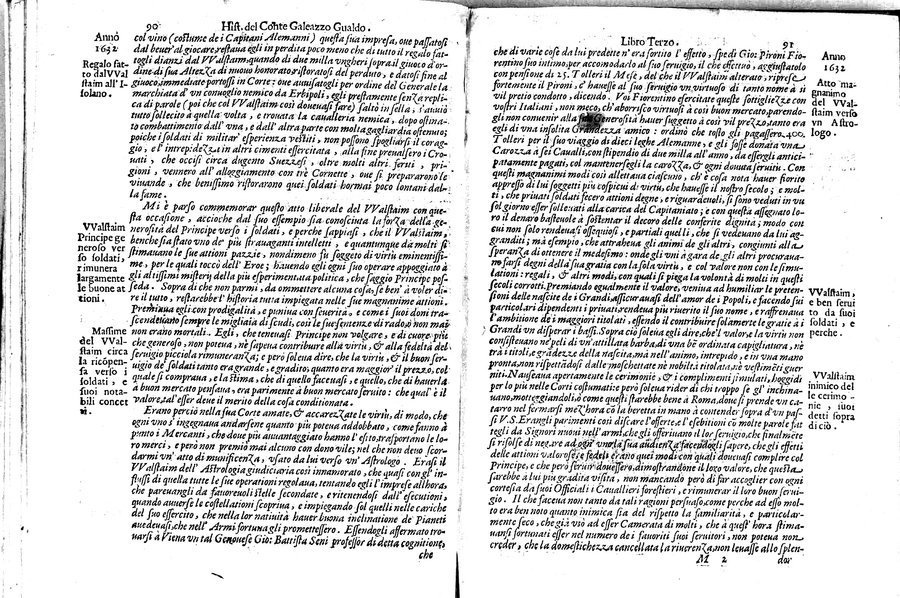 90 Hist. del Conte Galeazzo Gualdo.
Anno
1632
Regalo fat-
to dal VVal
staim all'I-
solano.
col vino (costume de i Capitani Alemanni) questa sua impresa, oue passatosi
dal beuer' al giocare, restaua egli in perdita poco meno che di tutto il regalo fat-
togli dianzi dal VValstaim, quando di due milla vngheri sopra il giuoco d'or-
dine di sua Altezza di nuouo honorato, ristoratosi del perduto, e datosi fine al
giuoco, immediate portossi in Corte: oue auuisatogli per ordine del Generale la
marchiata d'vn conuoglio nemico da Erbipoli, egli prestamente senza replì-
ca di parole (poi che col VValstaim così doueuasi fare) saltò in sella, s'auuiò
tutto sollecito a quella volta, e trouata la caualleria nemica, dopo ostina-
to combattimento dall'vna, e dall'altra parte con molta gagliardia ostenuto;
poiche i soldati di militar' esperienza vestiti, non possono spogliarsi il corag-
gio, e l'intrepidezza in altri cimenti essercitata, alla fine preualsero i Cro-
uati, che occisi circa dugento Suezzesi, oltre molti altri feriti, e pri-
gioni, vennero all'alloggiamento con tre Cornette, oue si prepararono le
viuande, che benissimo ristorarono quei soldati hormai poco lontani dal-
la fame.
VValstaim
Principe ge
neroso ver
so soldati,
rimunera
largamente
le buone at
tioni.
Mi è parso commemorar questo atto liberale del VValstaim con que-
sta occasione, acciocche dal suo essempio sia conosciuta la forza della ge-
nerosità del Principe verso i soldati, e perche sappiasi, che il VValstaim,
benche sia stato vno de' più strauaganti intelletti, e quantunque da molti si
stimauano le sue attioni pazzie, nondimeno fu soggetto di virtù eminentissi-
me, per le quali toccò dell'Eroe; hauendo egli ogni suo operare appoggiato à
gli altissimi misterij della più esperimentata politica, che saggio Principe pos-
seda. Sopra di che non parmi, da ommettere alcuna cosa, se ben' à voler di-
re il tutto, restarebbe l'historia tutta impiegata nelle sue magnanime attioni.
Massime
del VVal-
staim circa
la ricōpen-
sa verso i
soldati, e
suoi nota-
bili concet
ti.
Premiaua egli con prodigalità, e puniua con seuerità, e come i suoi doni tra-
scendeuano sempre le migliaia di scudi, così le sue sentenze di rado, ò non mai
non erano mortali. Egli, che teneuasi Principe non volgare, e di cuore più
che generoso, non poteua, nè sapeua contribuire alla virtù, & alla fedeltà del
seruigio picciola rimuneranza; e però soleua dire, che la virtù, & il buon ser-
uigio de' soldati tanto era grande, e gradito, quanto era maggior' il prezzo, col
quale si compraua, e la stima, che di quello faceuasi, e quello, che di hauerla
à buon mercato pensaua, era parimente à buon mercato seruito: che qual' è il
valore, tal' esser deue il merito della cosa conditionata.
Erano perciò nella sua Corte amate, & accarezzate le virtù, di modo, che
ogn'vno s'ingegnaua andarsene quanto più poteua addobbato, come fanno à
punto i Mercanti, che doue più auuantaggiato hanno l'esito, trasportano le lo-
ro merci, e però non premiò mai alcuno con dono vile; nel che non deuo scor-
darmi vn'atto di munificenza, vsato da lui verso vn' Astrologo. Erasi il
VValstaim dell'Astrologia giudiciaria così innamorato, che quasi con gl'in-
flussi di quella tutte le sue operationi regolaua, tentando egli l'imprese allhora,
che pareuangli da fauoreuoli stelle secondate, e ritenendosi dall'esecutioni,
quando auuerse le costellationi scopriua, e impiegando sol quelli nelle cariche
del suo essercito, che nella lor natiuità hauer buona inclinatione de Pianeti
auedeuasi, che nell' Armi fortuna gli promettessero. Essendogli affermato tro-
uarsi à Viena vn tal Genouese Gio: Battista Seni professor di detta cognitione,
che
Libro Terzo. 91
che di varie cose da lui predette n'era sortito l'effetto, spedì Gio: Pironi Fio-
rentino suo intimo, per accomodarlo al suo seruigio, il che effettuò, aggiustatolo
con pensione di 25. Tolleri il Mese, del che il VValstaim alterato, riprese
fortemente il Pironi, c'hauesse al suo seruigio vn virtuoso di tanto nome à si
vil pretio condotto, dicendo. Voi Fiorentino essercitate queste sottigliezze con
vostri Italiani, non meco, ch'aborrisco virtuosi à così buon mercato, parendo-
gli non conuenir alla sua Generosità hauer suggetto à così vil prezzo, tanto era
egli di vna insolita Grandezza amico: ordinò che tosto gli pagassero 400.
Tolleri per il suo viaggio di dieci leghe Alemanne, e gli fosse donata vna
Carozza à sei Caualli, con stipendio di due milla all'anno, da essergli antici-
patamente pagati, col mantenersegli la carozza, & ogni douuta seruitù. Con
questi magnanimi modi così allettaua ciascuno, ch'è cosa nota hauer fiorito
appresso di lui suggetti più cospicui di virtù, che hauesse il nostro secolo; e mol-
ti, che priuati soldati fecero attioni degne, e riguardeuoli, si sono veduti in vn
sol giorno esser solleuati alla carica del Capitaniato; e con questa assegnato lo-
ro il denaro basteuole à sostentar il decoro delle conferite dignità; modo con
cui non solo rendeuasi ossequiosi, e partiali quelli, che si vedeuano da lui ag-
granditi; mà esempio, che attraheua gli animi de gli altri, congiunti alla
speranza di ottenere il medesimo: onde gli vni à gara de gli altri procuraua-
no farsi degni della sua gratia con la sola virtù, e col valor non con le simu-
lationi: regali, & altri modi, con quali si piega la volontà di molti in questi
secoli corrotti. Premiando egualmente il valore, veniua ad humiliar le preten-
sioni delle nascite de i Grandi, assicurauasi dell'amor de i Popoli, e facendo sui
particolari dipendenti i priuati, rendeua più riuerito il suo nome, e raffrenaua
l'ambitione de i maggiori titolati, essendo il contribuire solamente le gratie à i
Grandi vn disperar i bassi. Sopra ciò era solito dire, che quel valore, e la virtù non
consisteuano ne' peli di vn'attillata barba, di vna bē ordinata capigliatura, nè
era i titoli, e grādezze della nascita, ma nell'animo, intrepido, e in vna mano
pronta, non rispettādosi dalle moschettate nè nobiltà titolata, nè vestimēti guer-
niti. Nauseaua apertamente le cerimonie, & i complimenti simulati, hoggidì
per lo più nelle Corti costumati: e però soleua rider di chi troppo se gl'inchi-
nauano, motteggiandoli, ò come questi starebbe bene à Roma, doue si prende vn ca-
tarro nel fermarsi mez'hora cō la beretta in mano à contender sopra d'vn pas-
si V. S. Erangli parimenti così discare l'offerte, e l'esebitioni cō molte parole fat-
tegli da Signori nuoui nell'armi, che gli offeriuano il lor seruigio, che finalmēte
si risolse di negare ad ogn'vno la sua audienza facendogli sapere, che gli effetti
delle attioni valorose, e fedeli erano quei modi con quali doueuasi complire col
Principe, e che però seruir douessero, dimostrandone il loro valore, che questa
sarebbe à lui più gradita visita, non mancando però di far accoglier con ogni
cortesia da suoi Officiali i Caualieri forestieri, e rimunerar il loro buon serui-
gio. Il che faceua non tanto da tali ragioni persuaso, come perche ad esso mol-
to era ben noto quanto inimica sia del rispetto la familiarità, e particolar-
mente seco, che già vidde ad esser Camerata di molti, che à quest' hora stima-
uansi fortunati esser nel numero de i fauoriti suoi seruitori, non poteua non
creder, che la domestichezza cancellata la riuerenza, non leuasse allo splen-
M 2 dor
Anno
1632
Atto ma-
gnanimo
del VVal-
staim verso
vn Astro-
logo.
VValstaim,
e ben serui
to da suoi
soldati, e
perche.
VValstaim
inimico del
le cerimo-
nie, suoi
detti sopra
di ciò.